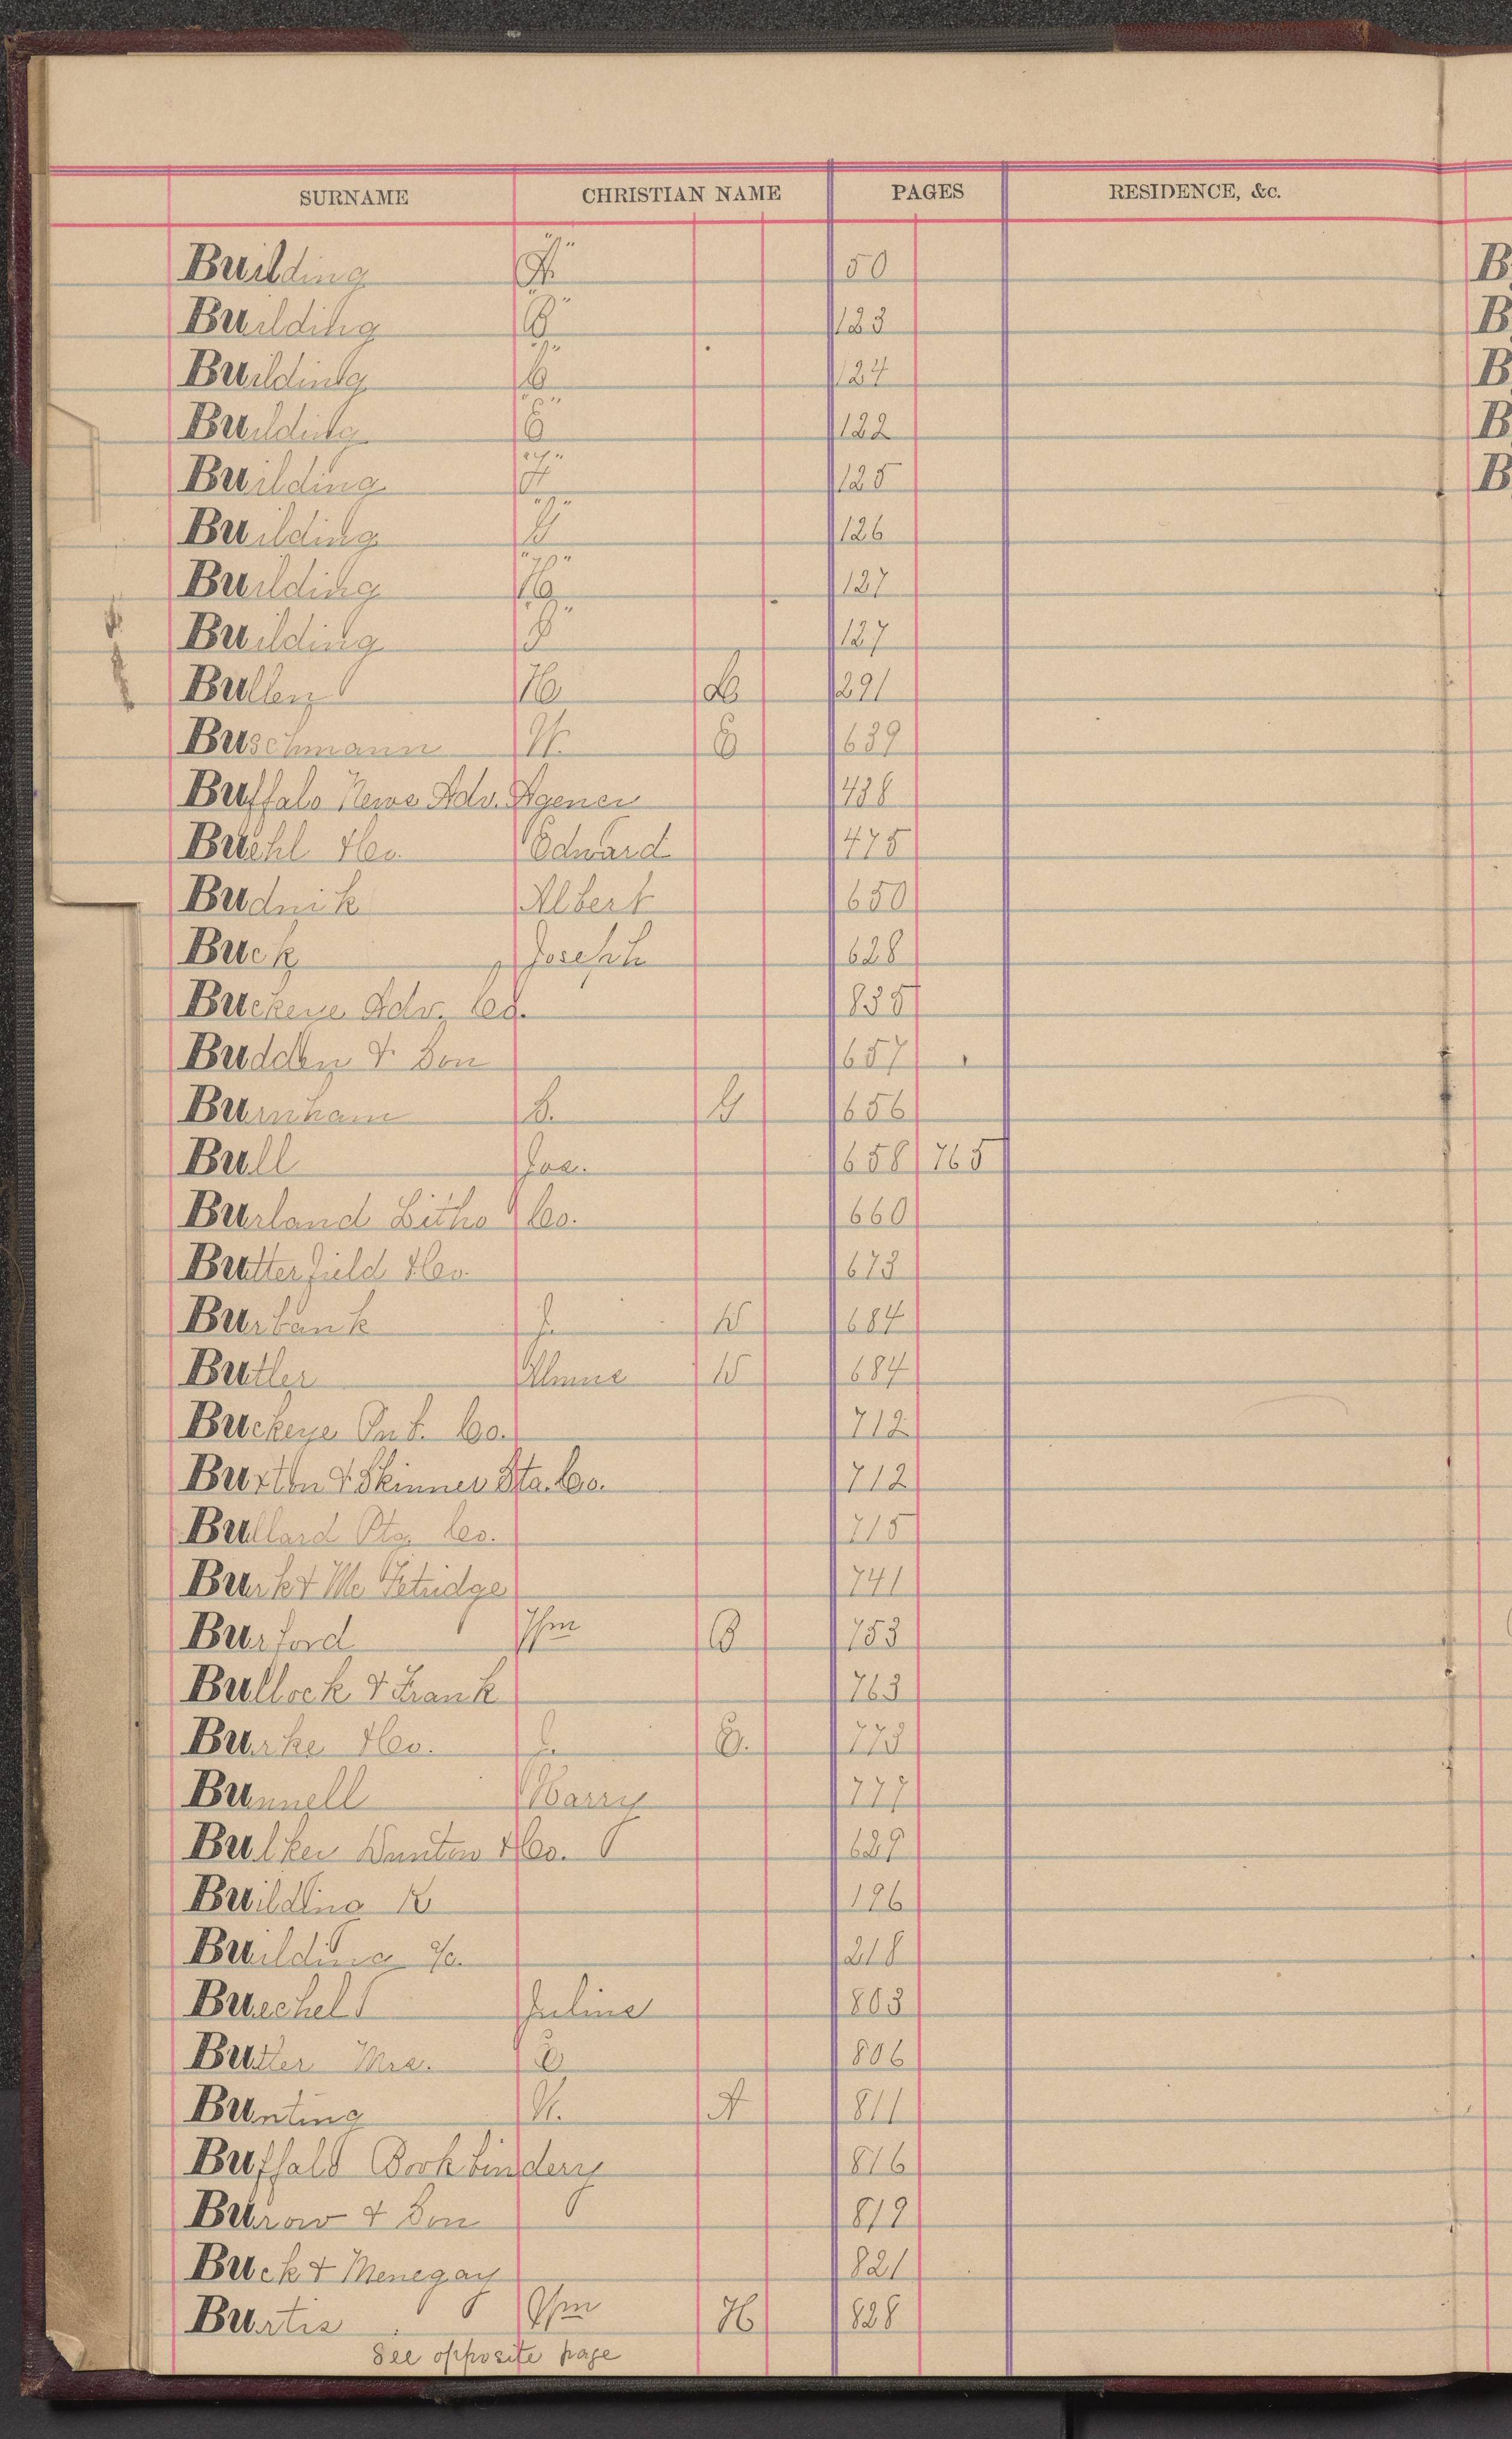 SURNAME CHRISTIAN NAME PAGES RESIDENCE, &c.
Building "A" 50
Building "B" 123
Building "C" 124
Building "E" 122
Building "F" 125
Building "G" 126
Building "H" 127
Building "I" 127
Bullen H L 291
Buschmann W. C 639
Buffalo News Adv. Agency 438
Buehl & Co. Edward 475
Budnik Albert 650
Buck Joseph 628
Buckeye Adv. Co. 835
Budden & Son 657
Burnham C. G 656
Bull Jos. 658 765
Burland Litho Co. 660
Butterfield & Co. 673
Burbank J. W 684
Butler W 684
Buckeye Co. 712
Buxton & Skinner Sta. Co. 712
Bullard Ptg. Co. 715
Burk & Mc Fetridge 741
Burford Wm B 753
Bullock & Frank 763
Burke & Co. J. E. 773
Bunnell Harry 777
& Co. 629
Building K 196
Building a/c. 218
Buechel Julius 803
Butler Mrs. E 806
Bunting W. A 811
Buffalo Bookbindery 816
Burow & Son 819
Buck & Menegay 821
Burtis Wm H 828
See opposite page
B
B
B
B
B